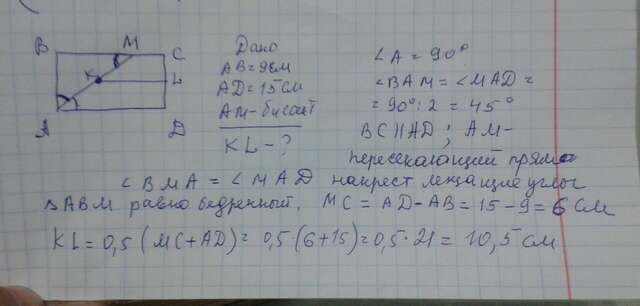 B M C
K L
A D
Дано
AB=9см
AD=15см
AM-бисект
KL-?
∠A=90°
∠BAM=∠MAD=
=90°:2=45°
BC||AD; AM-
пересекающий прямая
∠BMA=∠MAD накрест лежащие углы
△ABM равнобедренный. MC=AD-AB=15-9=6 см
KL=0,5(MC+AD)=0,5(6+15)=0,5·21=10,5см